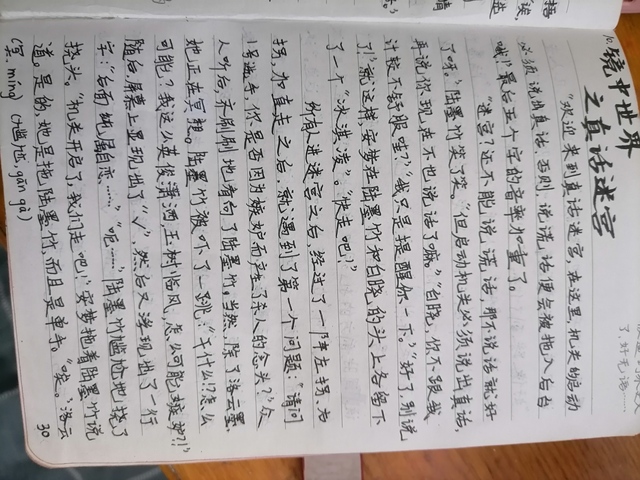 10.镜中世界
之真话迷宫
“欢迎来到真话迷宫,在这里,机关的启动
必须说出真话,否则,说谎话便会被拖入后台
哦!”最后五个字的音率加重了。
“迷宫?还不能说谎话,那不说话就好
了呀。”陆墨竹笑了笑。“但启动机关必须说出真话,
再说你现在不也说话了嘛。”“白晓,你不跟我
计较不舒服哈?”“我只是提醒你一下。”“好了,别说
了!”就这样,安梦在陆墨竹和白晓的头上各留下
了一个“冰淇凌”。“快走吧!”
所有人进迷宫之后,经过了一阵左拐、右
拐、加直走之后,就遇到了第一个问题:“请问
1号选手,你是否因为嫉妒而产生了杀人的念头?”众
人听后,齐刷刷地看向了陆墨竹。当然,除了洛云墨,
她正在冥想。陆墨竹被吓了一跳:“干什么!?怎么
可能?我这么英俊潇洒,玉树临风,怎么可能嫉妒?!”
随后,屏幕上显现出了“√”,然后又浮现出了一行
字:“后面纯属自恋……”“呃……”陆墨竹尴尬地挠了
挠头。“机关开启了,我们走吧!”安梦拖着陆墨竹说
道。是的,她是拖陆墨竹,而且是单手。“唉。洛云
(冥:míng) (尴尬:gān gà)
30